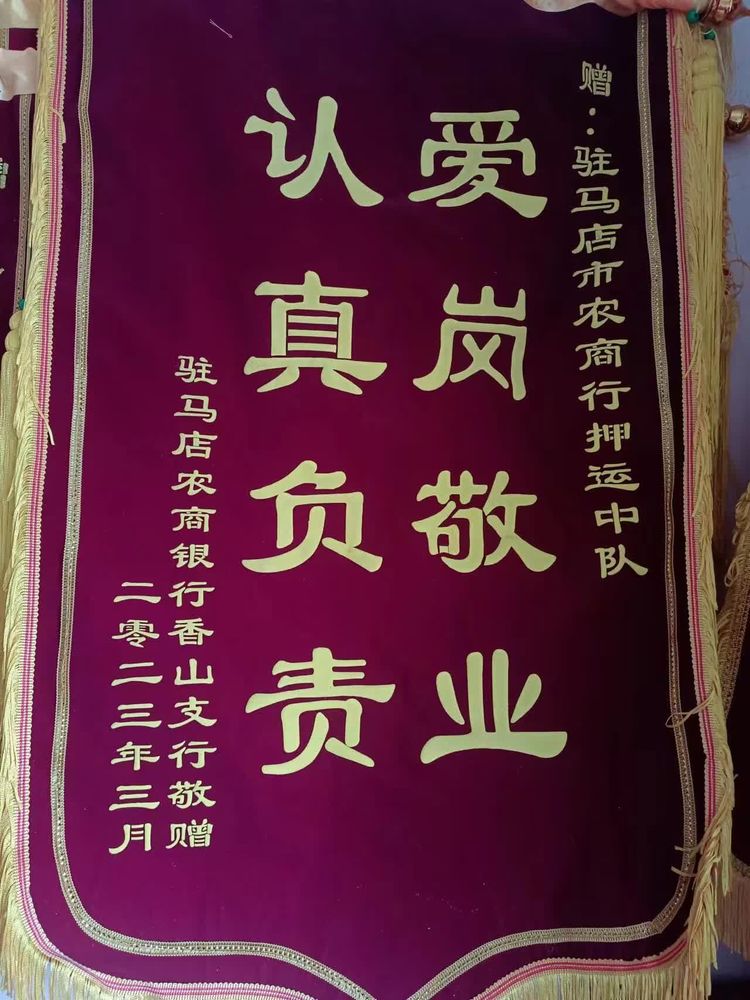 赠：驻马店市农商行押运中队
爱岗敬业
认真负责
驻马店农商银行香山支行敬赠
二零二三年三月